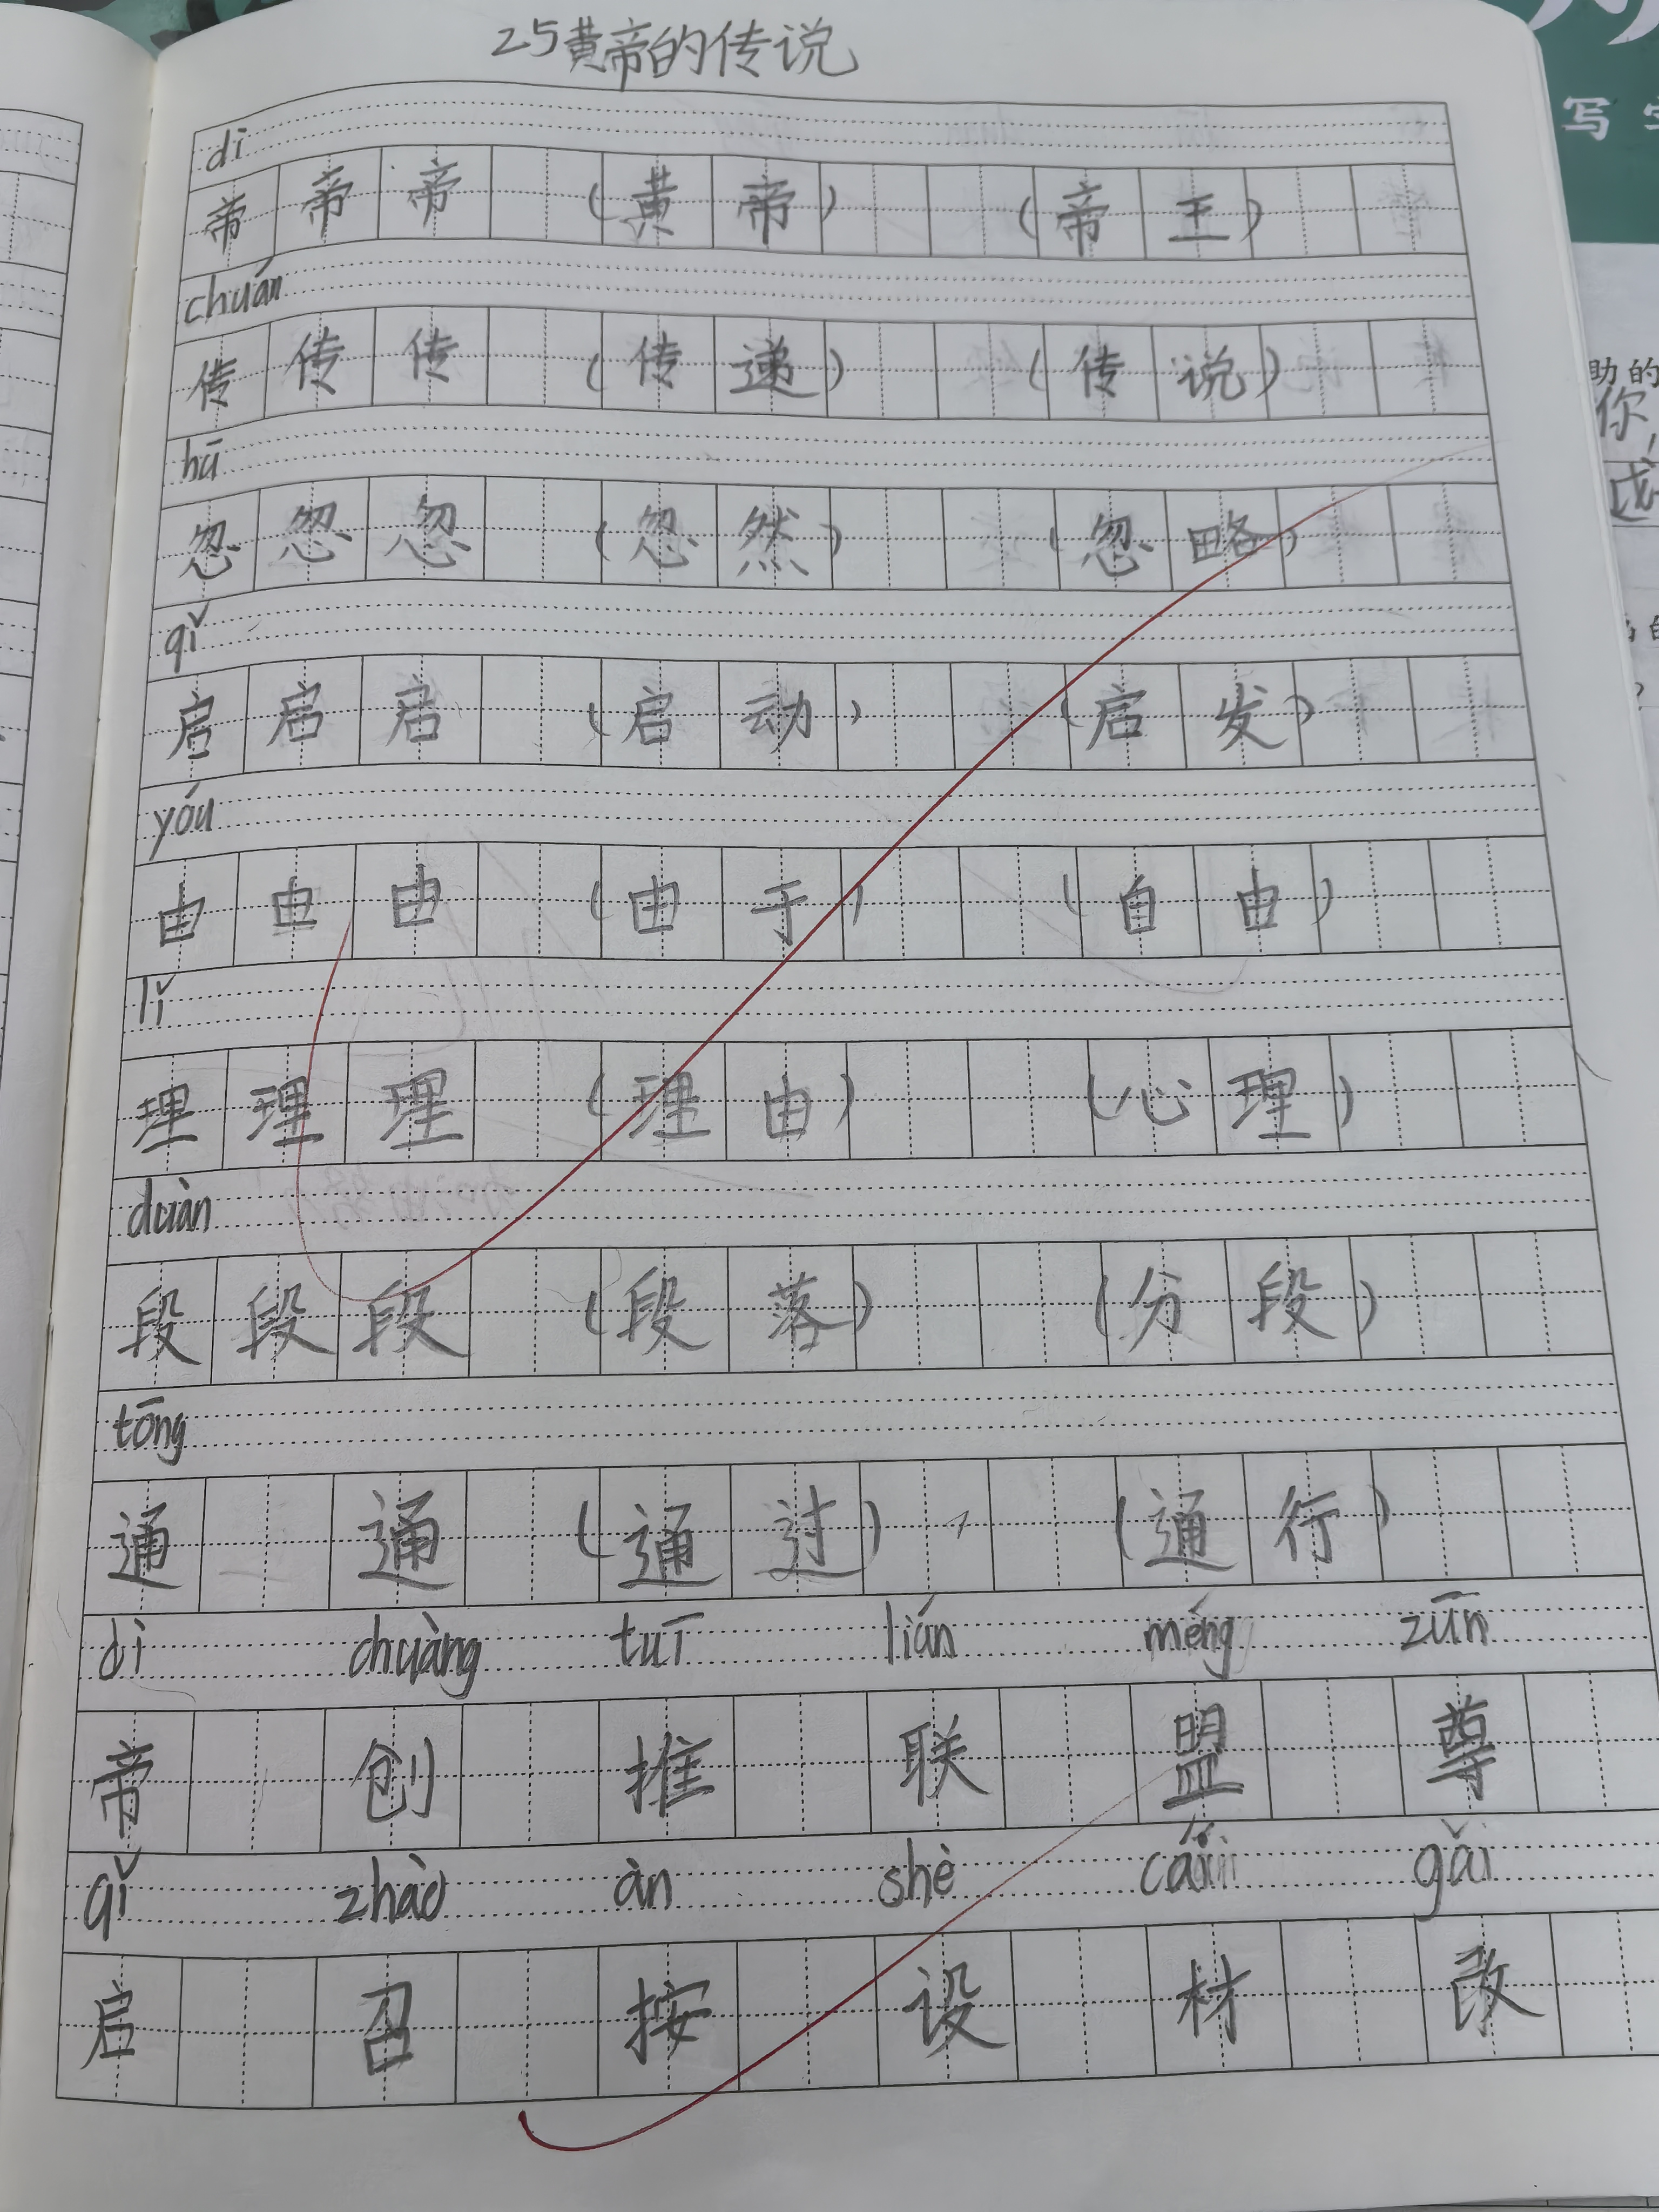 25黄帝的传说
dì
帝 帝 帝 (黄帝) (帝王)
chuán
传 传 传 (传递) (传说)
hū
忽 忽 忽 (忽然) (忽略)
qǐ
启 启 启 (启动) (启发)
yóu
由 由 由 (由于) (自由)
lǐ
理 理 理 (理由) (心理)
duàn
段 段 段 (段落) (分段)
tōng
通 通 (通过) (通行)
dì chuàng tuī lián méng zūn
帝 创 推 联 盟 尊
qǐ zhào àn shè cái gǎi
启 召 按 设 材 改
写
助的
你